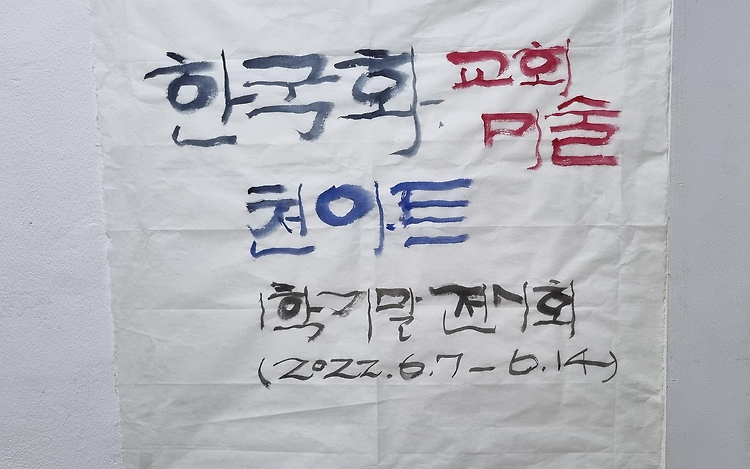 한국화. 교회
미술
천아트
1학기말 전시회
(2022.6.7 - 6.14)